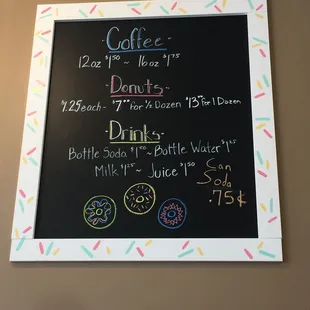 Coffee
12oz $1.50 ~ 16oz $1.75
Donuts
$1.25 each - $7.00 for ½ Dozen $13.00 for 1 Dozen
Drinks
Bottle Soda $1.50 ~ Bottle Water $1.25
Milk $1.25 ~ Juice $1.50
Can
Soda
.75¢